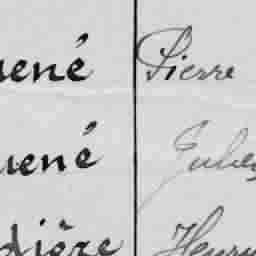 uené Pierre
uené Jules
dière Henri